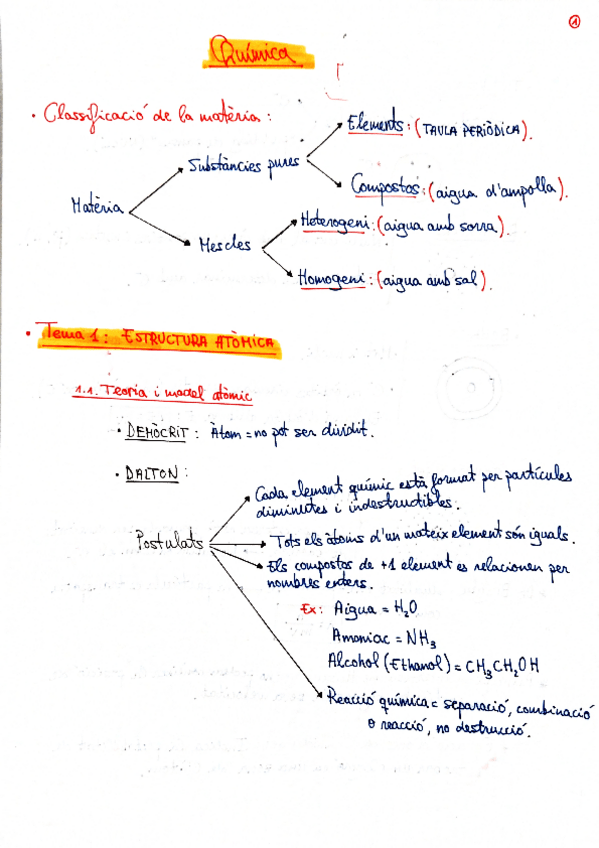 1
Química
· Classificació de la matèria:
Elements: (TAULA PERIÒDICA).
Substàncies pures
Compostos: (aigua d'ampolla).
Matèria
Heterogeni: (aigua amb sorra).
Mescles
Homogeni: (aigua amb sal).
· Tema 1: ESTRUCTURA ATÒMICA
1.1. Teoria i model atòmic
· DEMÒCRIT: Àtom = no pot ser dividit.
· DALTON:
Cada element químic està format per partícules
diminutes i indestructibles.
Postulats
Tots els àtoms d'un mateix element són iguals.
Els compostos de +1 element es relacionen per
nombres enters.
Ex: Aigua = H₂O
Amoniac = NH₃
Alcohol (Ethanol) = CH₃CH₂OH
Reacció química = separació, combinació
o reacció, no destrucció.